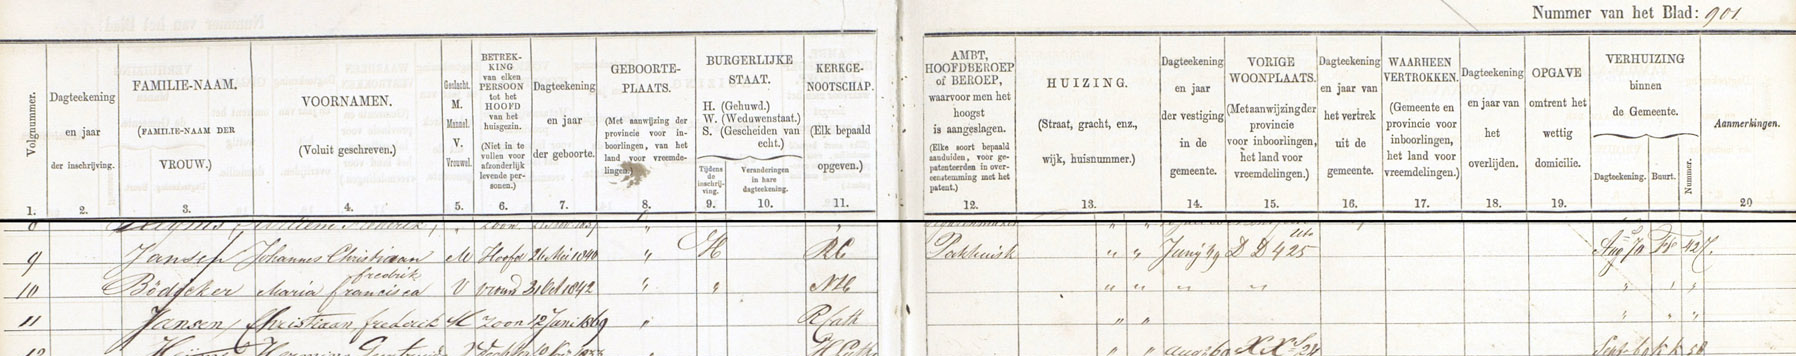 Nummer van het Blad: 901
Volgnummer.
Dagteekening
en jaar
der inschrijving.
FAMILIE-NAAM.
(FAMILIE-NAAM DER
VROUW.)
VOORNAMEN.
(Voluit geschreven.)
Geslacht.
M.
Mannel.
V.
Vrouwel.
BETREK-
KING
van elken
PERSOON
tot het
HOOFD
van het
huisgezin.
(Niet in te
vullen voor
afzonderlijk
levende per-
sonen.)
Dagteekening
en jaar
der geboorte.
GEBOORTE-
PLAATS.
(Met aanwijzing der
provincie voor in-
boorlingen, van het
land voor vreemde-
lingen.)
BURGERLIJKE
STAAT.
H. (Gehuwd.)
W. (Weduwenstaat.)
S. (Gescheiden van
echt.)
Tijdens
de
inschrij-
ving.
Veranderingen
in hare
dagteekening.
KERKGE-
NOOTSCHAP.
(Elk bepaald
opgeven.)
AMBT,
HOOFDBEROEP
of BEROEP,
waarvoor men het
hoogst
is aangeslagen.
(Elke soort bepaald
aanduiden, voor ge-
patenteerden in over-
eenstemming met het
patent.)
HUIZING.
(Straat, gracht, enz.,
wijk, huisnummer.)
Dagteekening
en jaar
der vestiging
in de
gemeente.
VORIGE
WOONPLAATS.
(Met aanwijzing der
provincie
voor inboorlingen,
het land voor
vreemdelingen.)
Dagteekening
en jaar van
het vertrek
uit de
gemeente.
WAARHEEN
VERTROKKEN.
(Gemeente en
provincie voor
inboorlingen,
het land voor
vreemdelingen.)
Dagteekening
en jaar van
het
overlijden.
OPGAVE
omtrent het
wettig
domicilie.
VERHUIZING
binnen
de Gemeente.
Dagteekening.
Buurt.
Nummer.
Aanmerkingen.
1. 2. 3. 4. 5. 6. 7. 8. 9. 10. 11. 12. 13. 14. 15. 16. 17. 18. 19. 20
9 Jansen Johannes Christiaan M Hoofd 26 Mei 1840 " H RC Pakhuisk " " D D 425 Aug 70
fredrik
10 Bödeker Maria francisca V vrouw 31 Oct 1842 " " NH " " " " " " "
11 Jansen, Christiaan, frederik M zoon 12 Juni 1869 " R Cath " " " " "
12 Sept